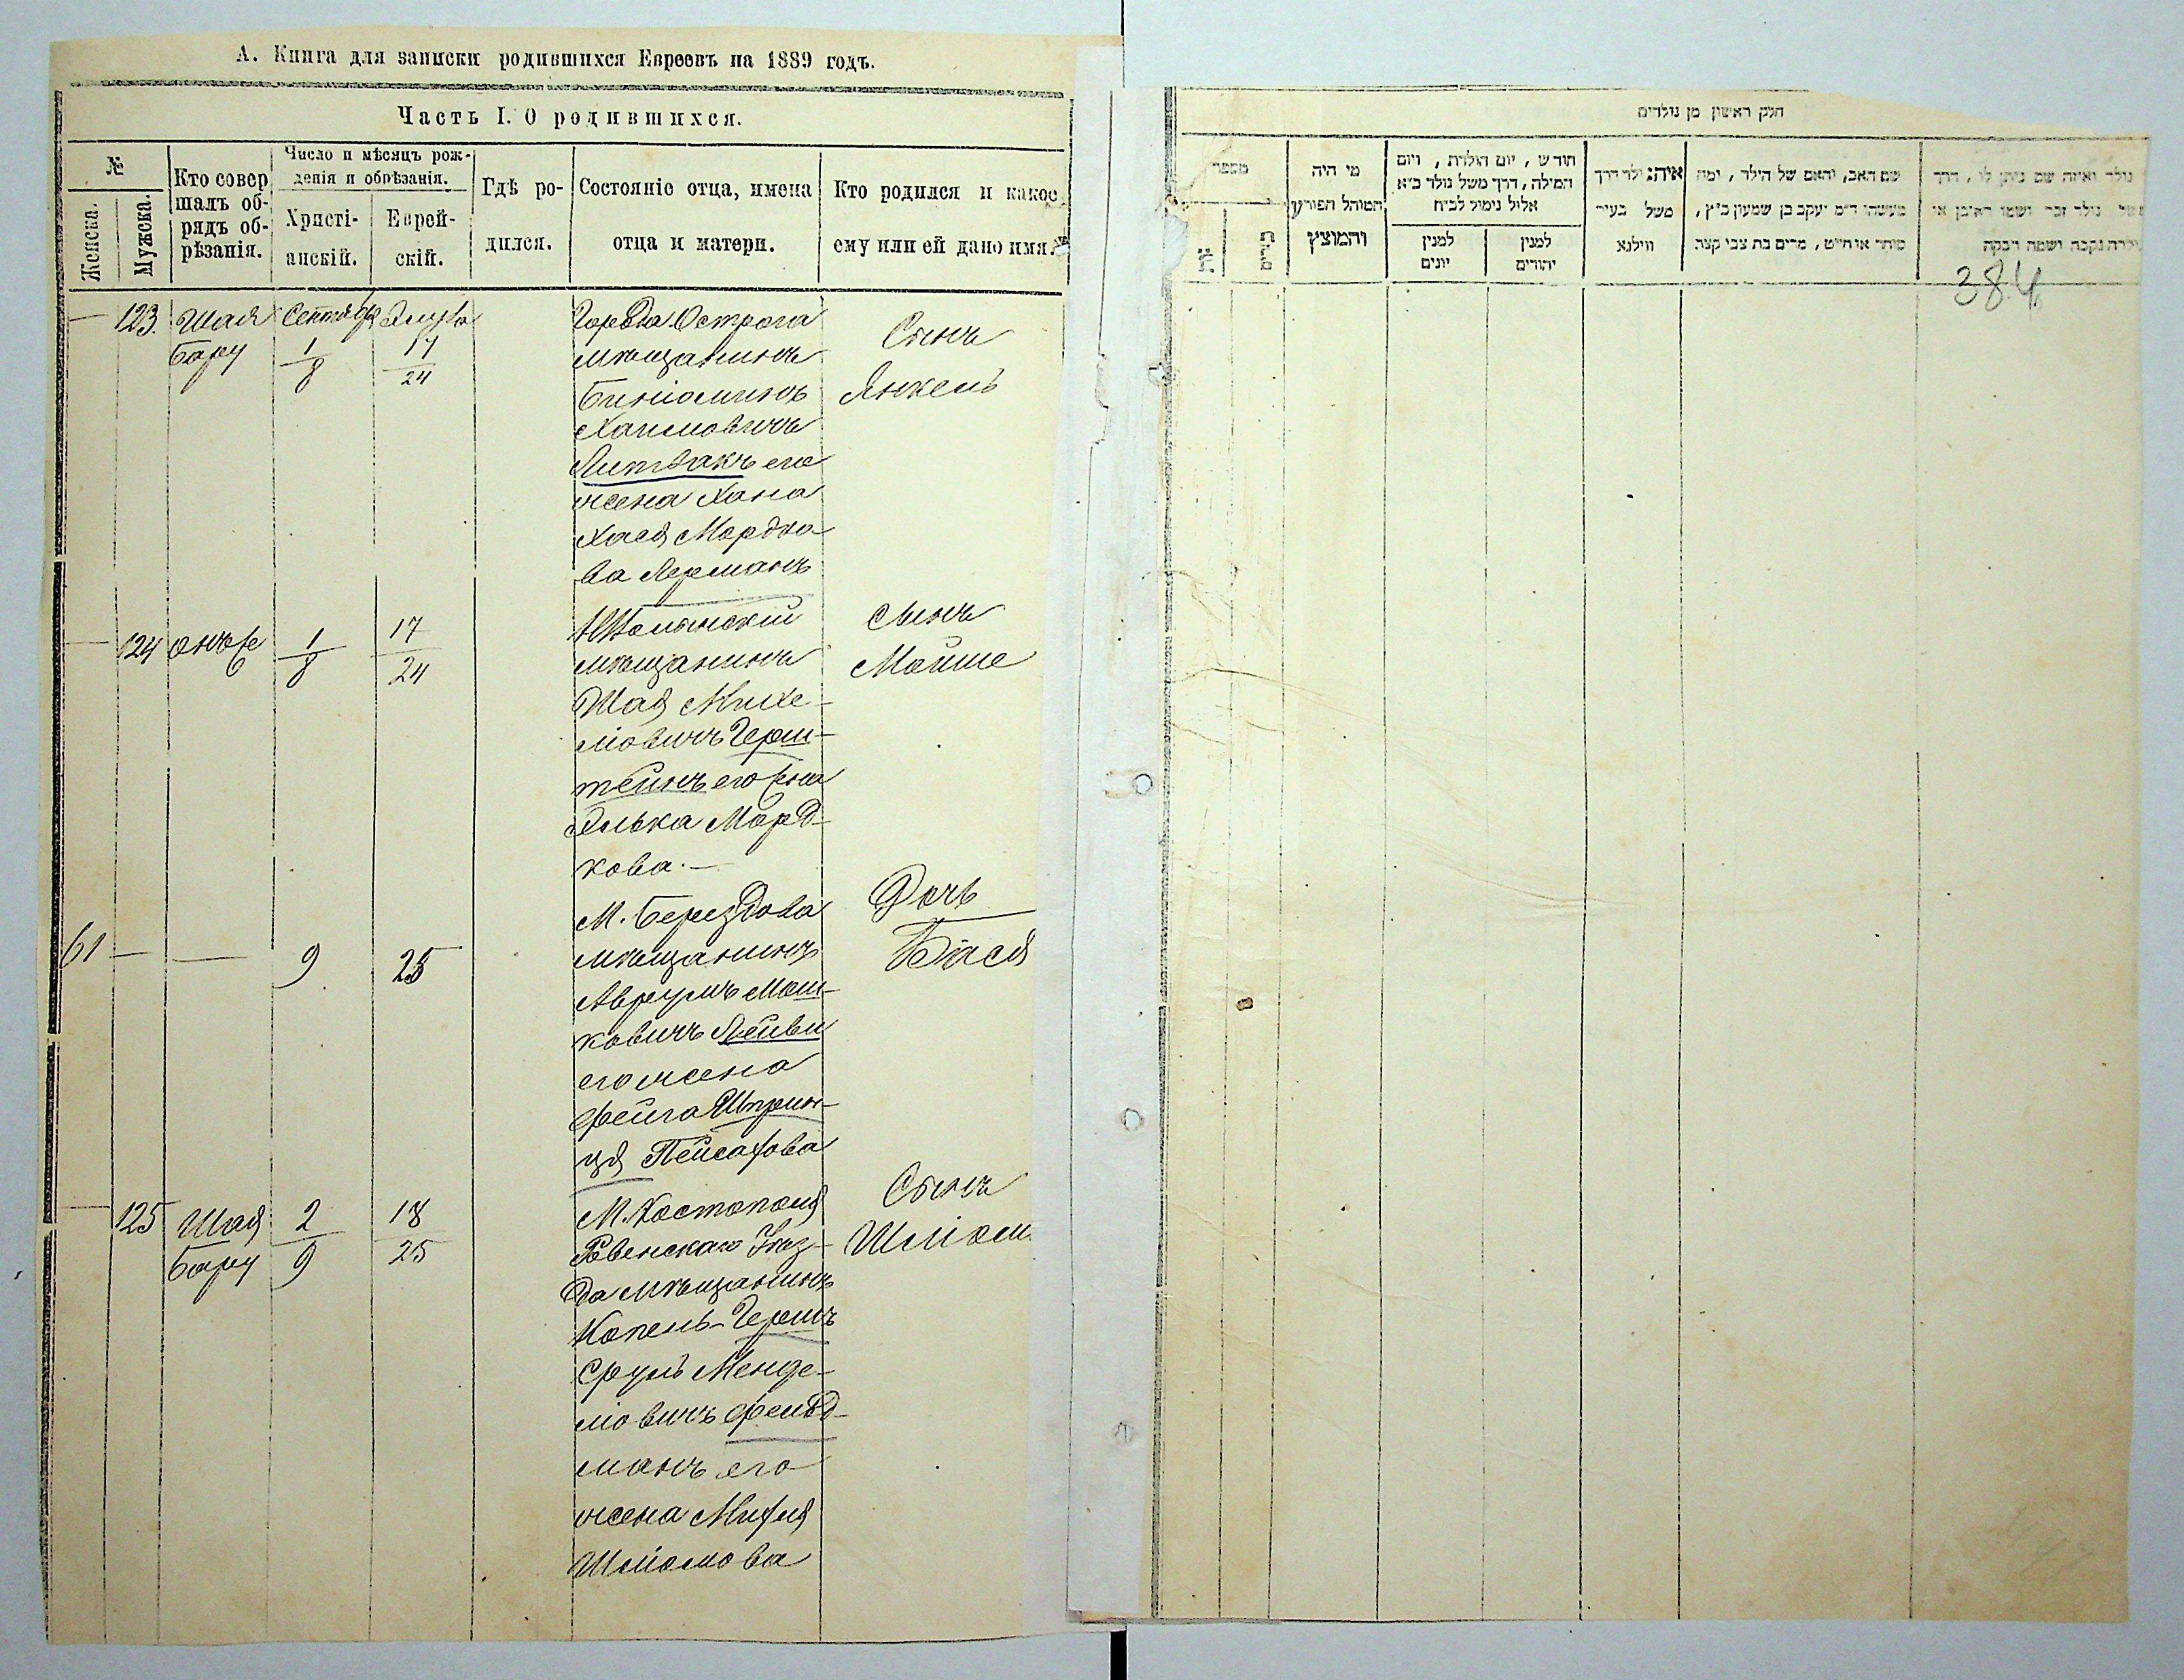 А. Книга для записки родившихся Евреевъ на 1889 годъ.
Часть I. О родившихся.
№
Женска.
Мужска.
Кто совер
шалъ об-
рядъ об-
рѣзанія.
Число и мѣсяцъ рож-
денія и обрѣзанія.
Христі-
анскій.
Еврей-
скій.
Гдѣ ро-
дился.
Состояніе отца, имена
отца и матери.
Кто родился и какое
ему или ей дано имя.
— 123 Шая Сентября Элула
Бару 1/8 17/24
Города Острога
мѣщанинъ
Биніоминъ
Хаимовичъ
Литвакъ его
жена Хана
Хася Мордко
ва Лерманъ
Сынъ
Янкель
— 124 онъже 1/8 17/24
мѣщанинъ
Шая Михе-
ліовичъ Герш-
тейнъ его жена
Элька Морд-
кова.—
сынъ
Мойше
61 — — 9 25
М. Берездова
мѣщанинъ
Авремъ Мош-
ковичъ Лейви
его жена
Фейга Шприн-
ця Пейсахова
Дочь
Бася
— 125 Шая 2/9 18/25
Бару
М. Костополя
Ровенскаго Уѣз-
да мѣщанинъ
Копель-Гершъ
Сруль Менде-
ліовичъ Фельд-
манъ его
жена Михля
Шліомова
Сынъ
Шліом
חלק ראשון מן נולדים
מספר
זכרים
מי היה
המוהל הפורע
והמוצץ
חודש, יום הולדת, ויום
המילה, דרך משל נולד כ״א
אלול נימול לכ״ח
למנין
יונים
למנין
יהודים
איה נולד דרך
משל בעיר
ווילנא
שם האב, והאם של הילד, ומה
מעשהו ד״מ יעקב בן שמעון כ״ץ,
סוחר או חייט, מרים בת צבי קצב
נולד ואיזה שם ניתן לו, דרך
משל נולד זכר ושמו ראובן או
נולדה נקבה ושמה רבקה
384